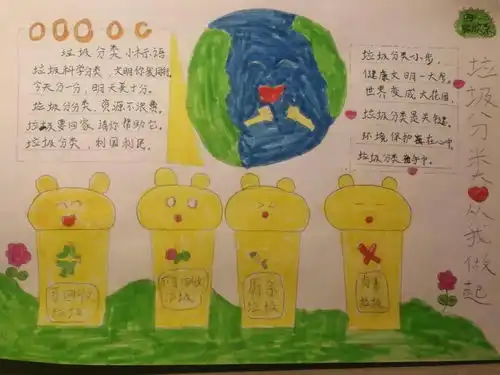 垃圾分类小标语
垃圾科学分类，文明你我同行。
今天分一分，明天美十分。
垃圾分分类，资源不浪费。
垃圾要回家，请你帮助它。
垃圾分类，利国利民。
垃圾分类小步，
健康文明一大步，
世界变成大花园。
垃圾分类是关键，
环境保护在心中，
垃圾分类
垃圾分类从我做起
可回收
垃圾
垃圾
厨余
垃圾
有害
垃圾